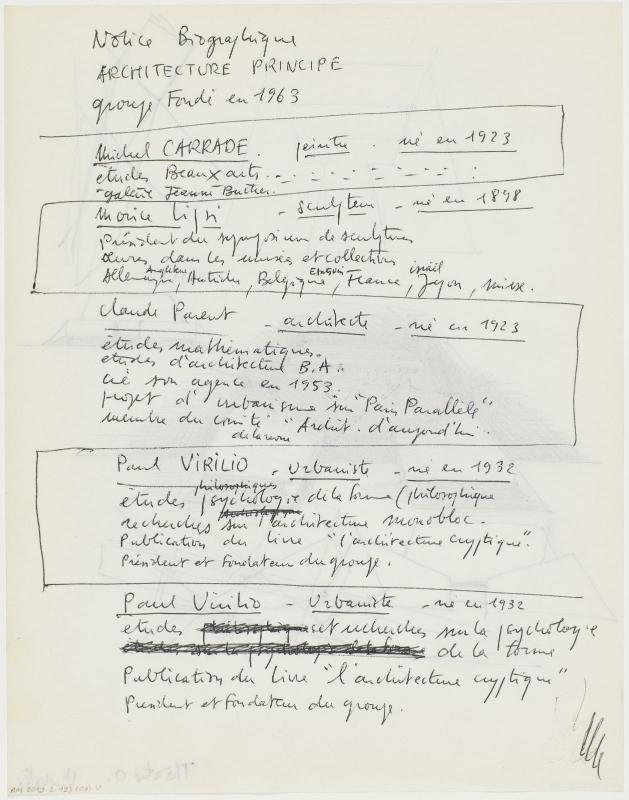 Notice Biographique
ARCHITECTURE PRINCIPE
groupe Fondé en 1963
Michel CARRADE. peintre. né en 1923
études Beaux arts.
galerie Jeanne Bucher.
Morice Lipsi - sculpteur - né en 1898
Président du symposium de sculpture
œuvres dans les musées et collections
Angleterre israël
Allemagne, Autriche, Belgique, France, Japon, suisse.
Claude Parent - architecte - né en 1923
études mathématiques.
études d'architecture B.A.
créé son agence en 1953.
projet d'urbanisme sur "Paris Parallèle"
membre du comité "Archit. d'aujourd'hui".
de la revue
Paul VIRILIO - Urbaniste - né en 1932
philosophiques
études psychologie de la forme (philosophique
recherches sur l'architecture monobloc.
Publication du livre "l'architecture cryptique".
Président et fondateur du groupe.
Paul Virilio - Urbaniste - né en 1932
études et recherches sur la psychologie
de la forme
Publication du livre "l'architecture cryptique"
Président et fondateur du groupe.